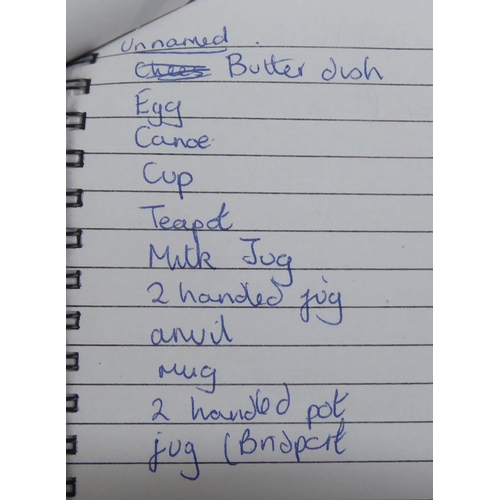 Unnamed .
Chees Butter dish
Egg
Canoe
Cup
Teapot
Milk Jug
2 handed jug
anvil
mug
2 handed pot
jug (Bridport